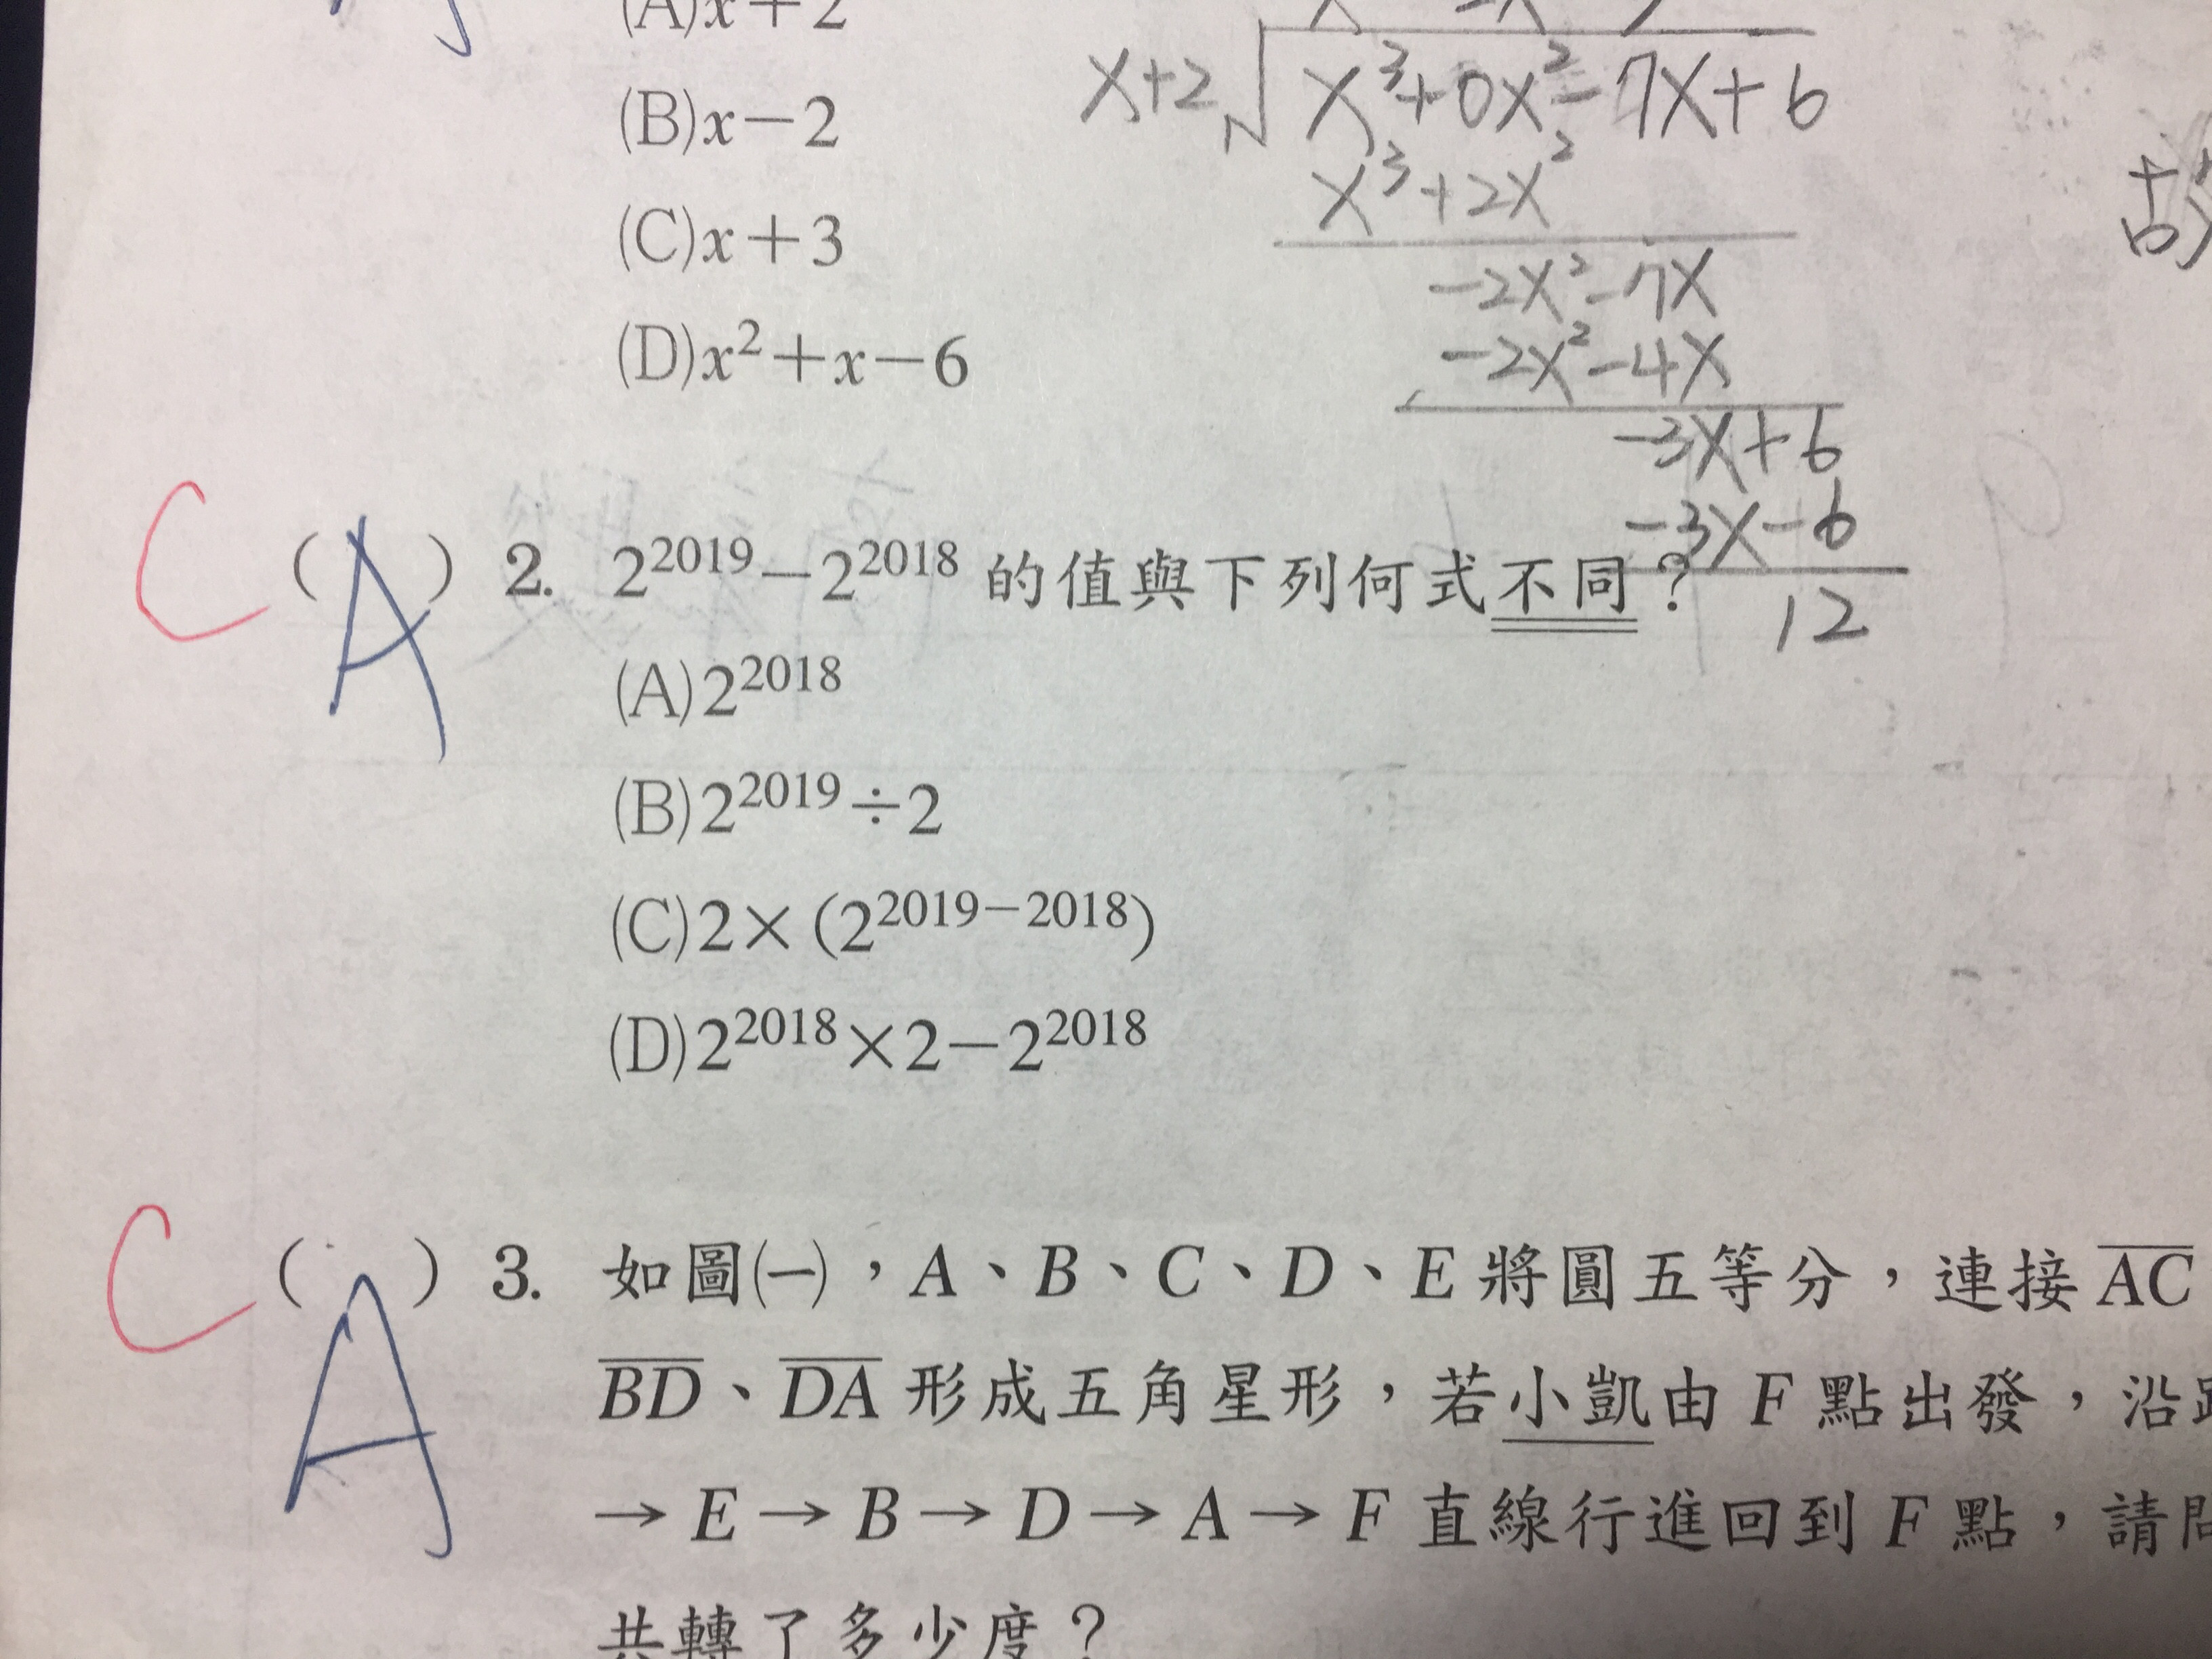 (A)x+2
(B)x−2
(C)x+3
(D)x²+x−6
x+2 √ x³+0x²−7x+6
x³+2x²
−2x²−7x
−2x²−4x
−3x+6
−3x−6
12
C (A) 2. 2²⁰¹⁹−2²⁰¹⁸ 的值與下列何式不同？
(A)2²⁰¹⁸
(B)2²⁰¹⁹÷2
(C)2×(2²⁰¹⁹⁻²⁰¹⁸)
(D)2²⁰¹⁸×2−2²⁰¹⁸
C (A) 3. 如圖㈠，A、B、C、D、E將圓五等分，連接 A̅C̅
B̅D̅、D̅A̅ 形成五角星形，若小凱由 F 點出發，沿
→E→B→D→A→F 直線行進回到 F 點，請問
共轉了多少度？